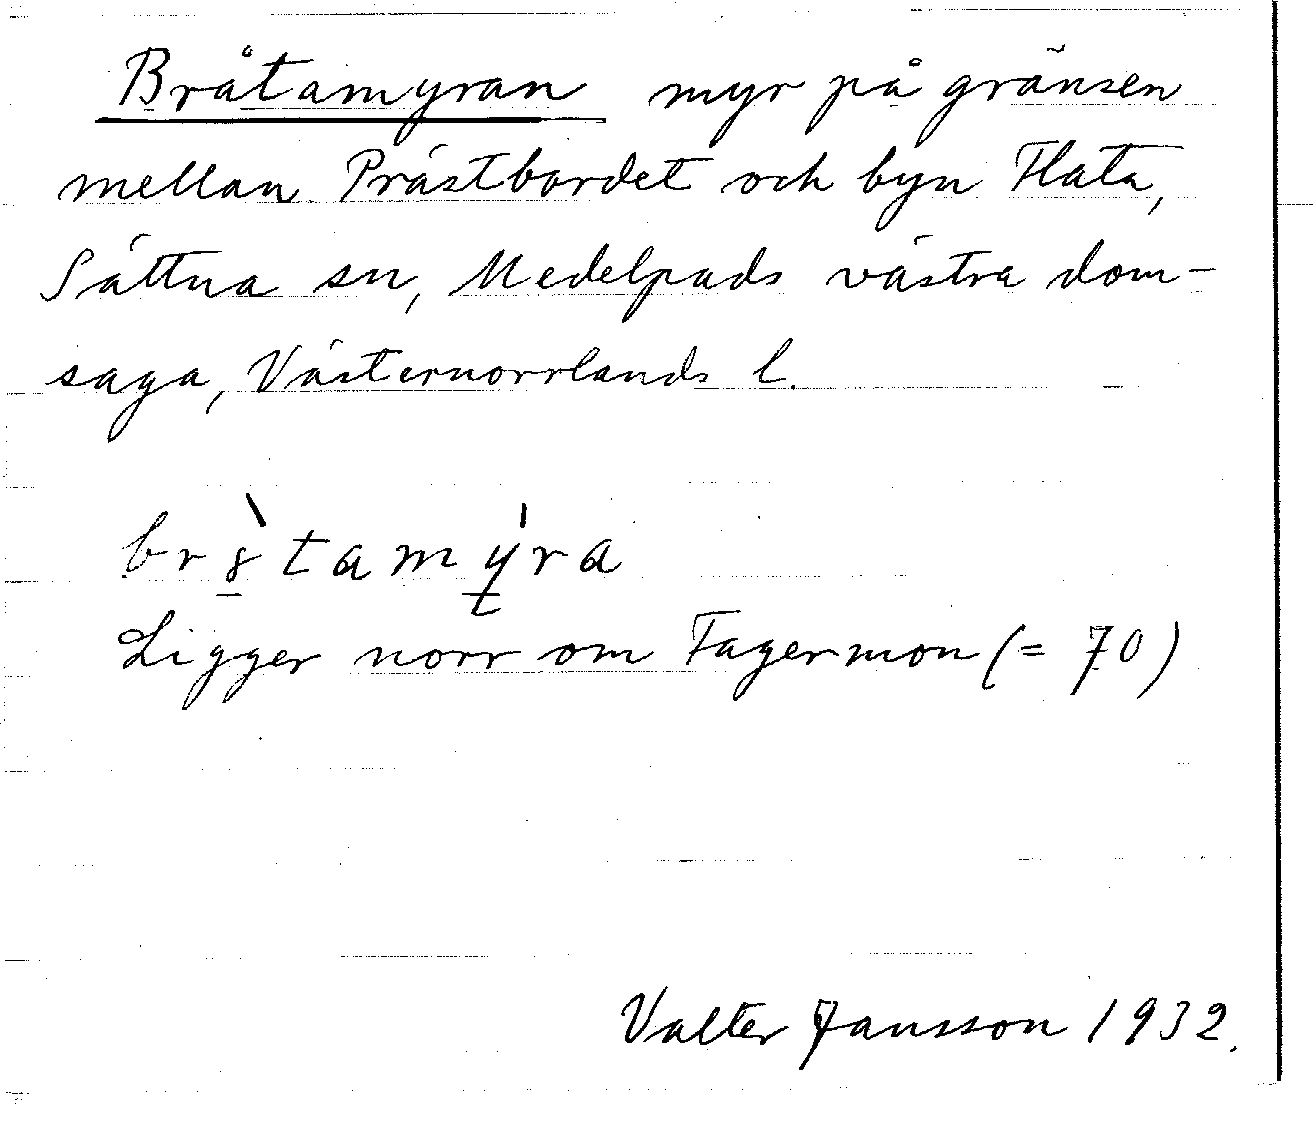 Bråtamyran myr på gränsen
mellan Prästbordet och byn Flata,
Sättna sn, Medelpads västra dom-
saga, Västernorrlands l.
Ligger norr om Fagermon (= 70)
Valter Jansson 1932.